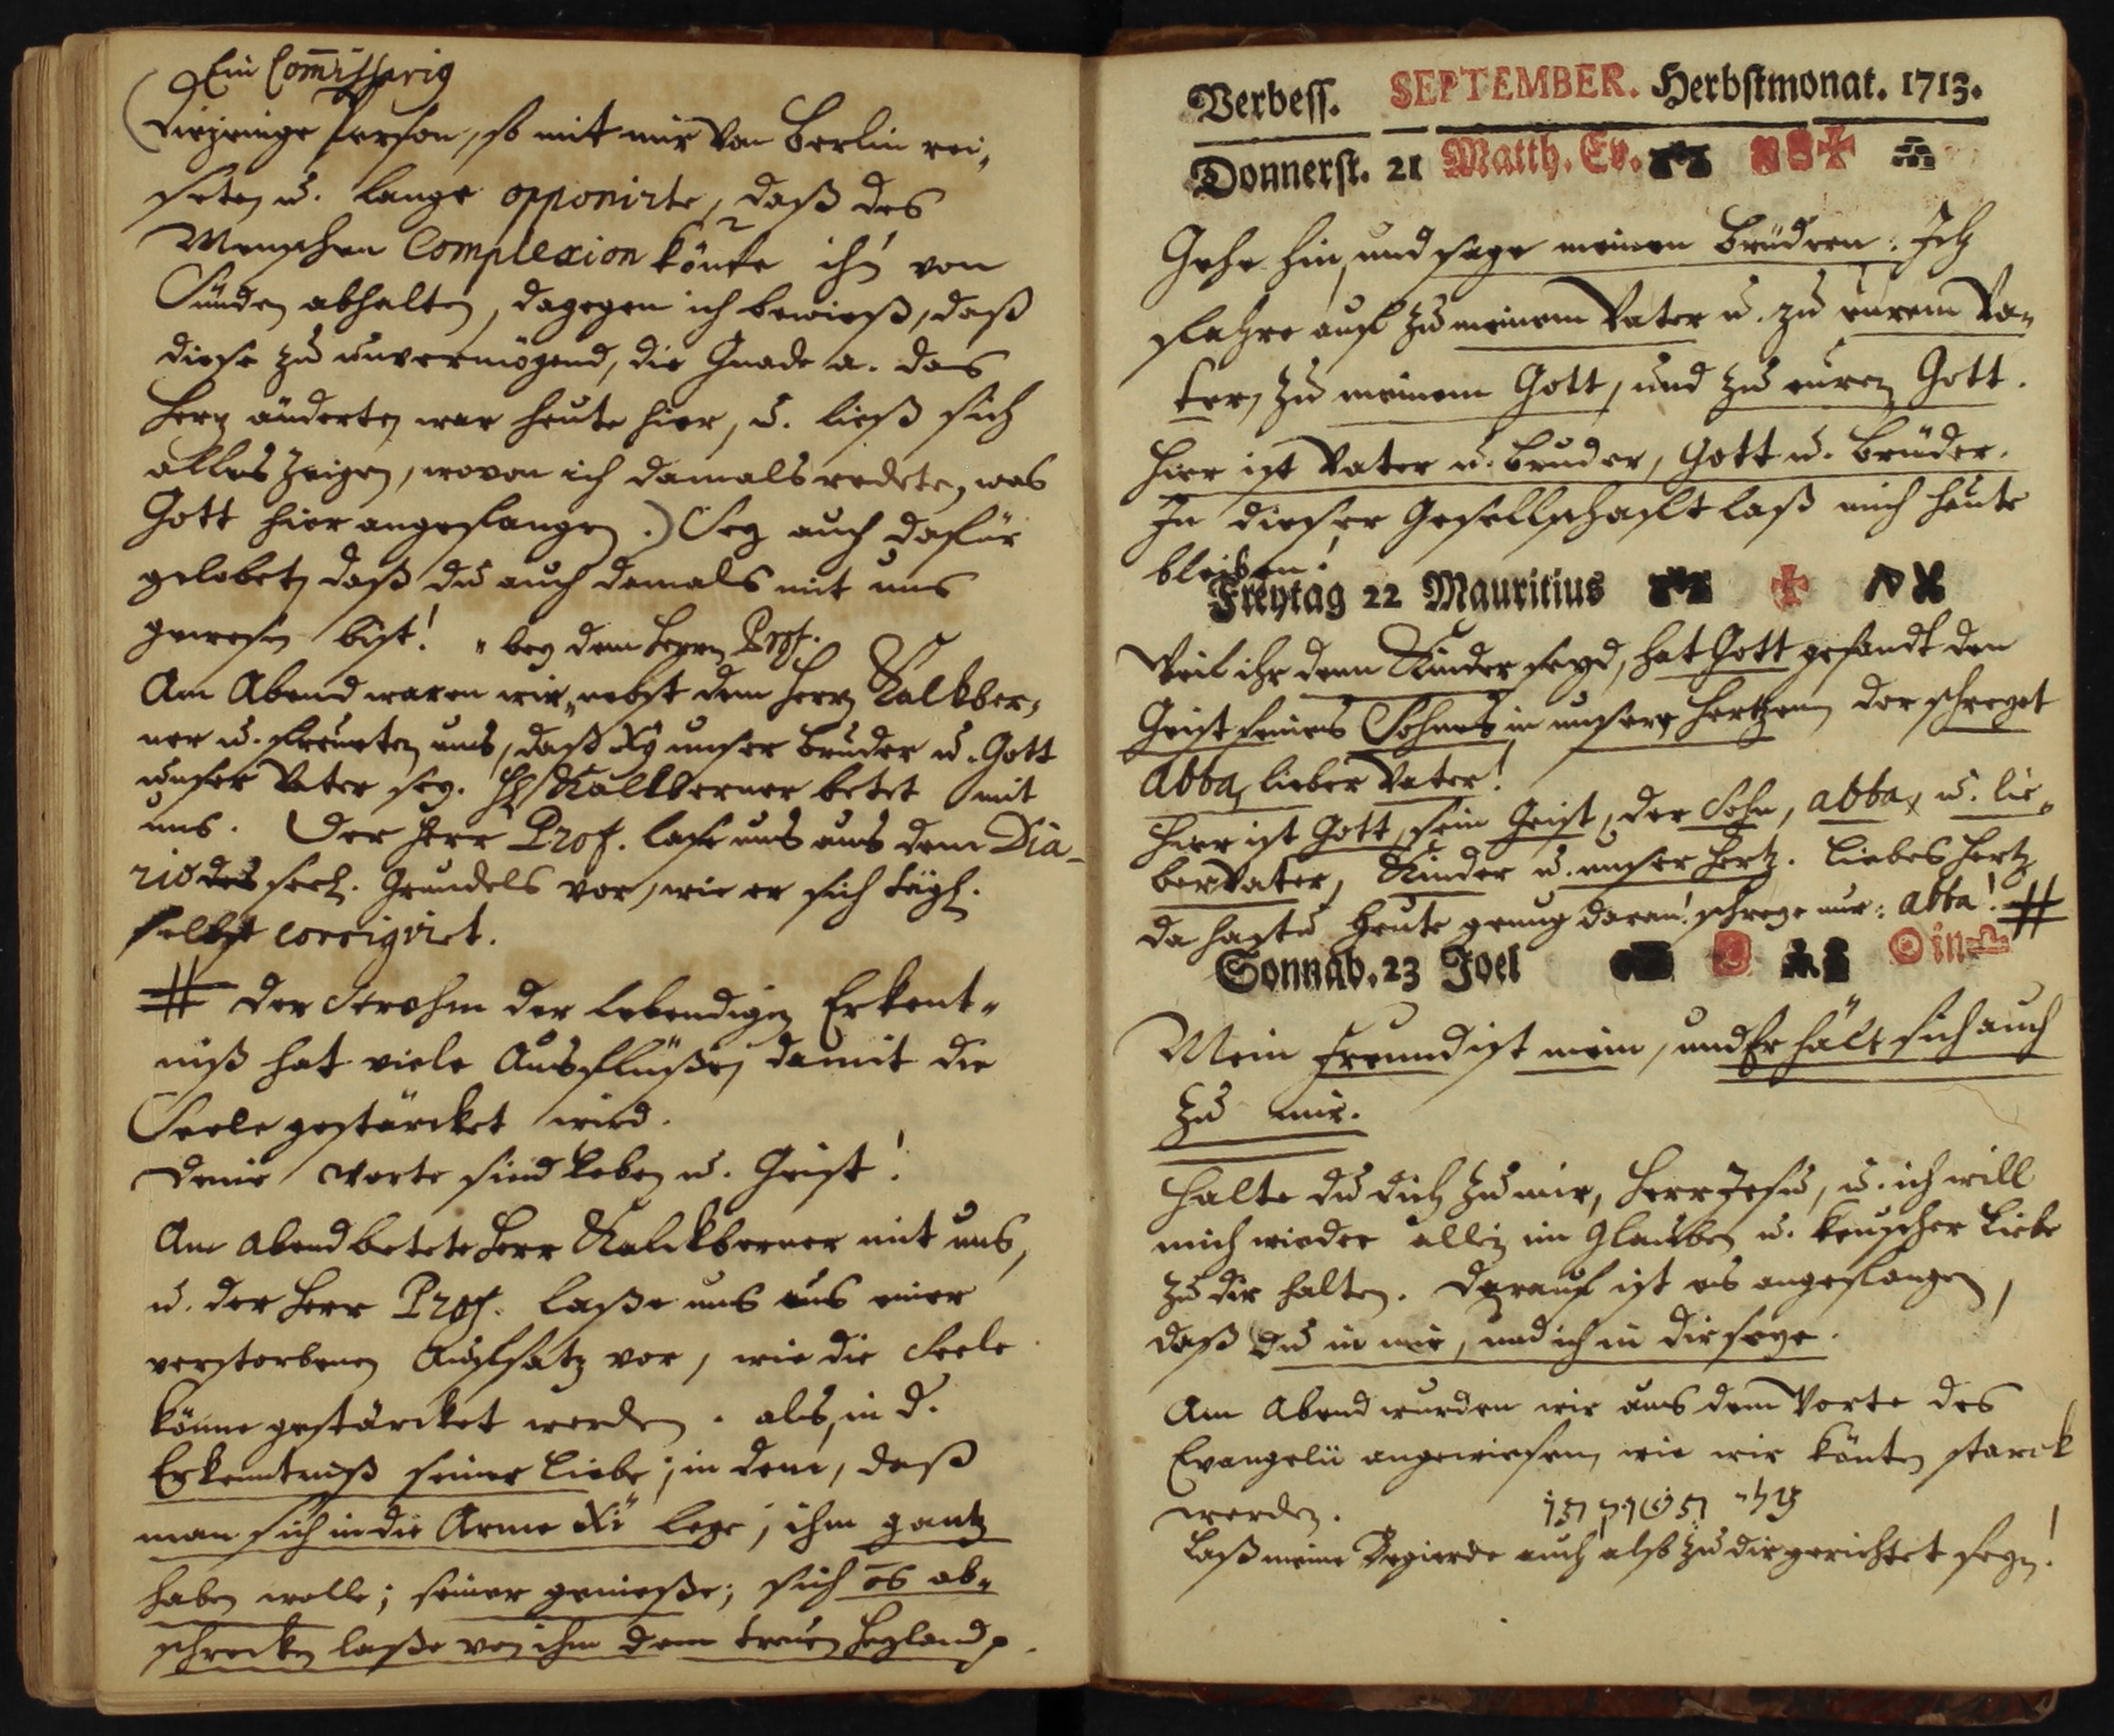 Ein Commissarig
(Diejenige Person, so mit mir von Berlin rei-
seten u. lange opponirte, daß des
Menschen Complexion könte ihn von
Sünden abhalten, dagegen ich bewieß, daß
diese zu unvermögend, die Gnade a. das
Herz änderten war heute hier, u. ließ sich
alles zeigen, wovon ich damals redete, was
Gott hier angefangen.) Sey auch dafür
gelobet, daß du auch damals mit uns
gewesen bist! " bey dem Herrn Prof.
Am Abend waren wir " nebst dem Herrn Kalkber,
ner u. freueten uns, daß Xs unser Bruder u. Gott
unser Vater sey. H Kalkberner betet mit
uns. Der Herr Prof. lase uns aus dem Dia-
rio des seel. Grundels vor, wie er sich tägl.
selbst corrigiret.
# Der Strohm der lebendigen Erkent-
niß hat viele Ausflüße, damit die
Seele gestärcket wird.
Deine Worte sind Leben u. Geist!
Am Abend betete Herr Kalckberner mit uns,
u. der Herr Prof. laße uns aus einer
verstorbenen Auffsatz vor, wie die Seele
könne gestärcket werden. als, in d.
Erkenntniß seiner Liebe; in dem, daß
man sich in die Arme Xi lege; ihm gantz
haben wolle; seiner genieße; sich os ab-
schrecken laße von ihm dem treuen Heyland.
Verbess. SEPTEMBER. Herbstmonat. 1713.
Donnerst. 21 Matth. Ev.
Gehe hin, und sage meinen Brüdern: Ich
fahre auf zu meinem Vater u. zu eurem Va-
ter, zu meinem Gott, und zu euren Gott.
Hier ist Vater u. Bruder, Gott u. Brüder.
In dieser Gesellschafft laß mich heute
bleiben!
Freytag 22 Mauritius
Weil ihr denn Kinder seyd, hat Gott gesandt den
Geist seines Sohnes in unsere Hertzen, der schreyet
Abba, lieber Vater!
Hier ist Gott, sein Geist, der Sohn, abba, u. lie-
ber Vater, Kinder u. unser Hertz. Liebes Hertz
da hastu heute genug daran! schreye nur: abba! #
Sonnab. 23 Joel ☉ in ♎
Mein Freund ist mein, und Er hält sich auch
zu mir.
Halte du dich zu mir, Herr Jesu, u. ich will
mich wieder allein im Glauben u. keuscher Liebe
zu dir halten. Darauf ist es angefangen,
daß Du in mir, und ich in dir seye.
Am Abend wurden wir aus dem Worte des
Evangelii angewiesen, wie wir könten starck
werden.
Laß meine Begierde auch also zu dir gerichtet seyn!